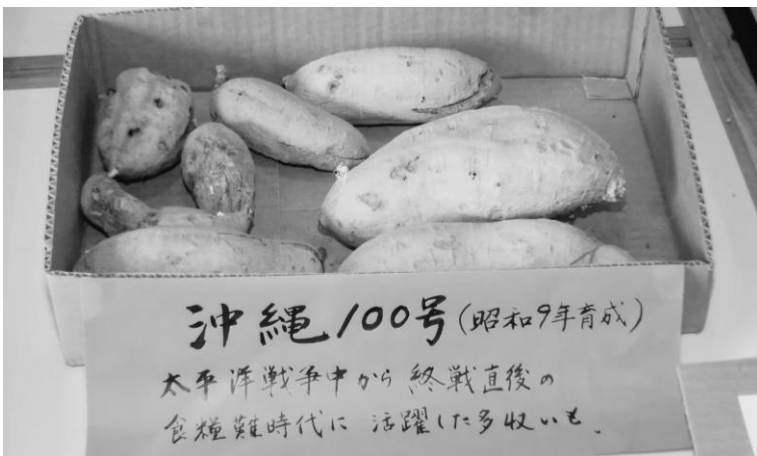 沖縄100号(昭和9年育成)
太平洋戦争中から終戦直後の
食糧難時代に活躍した多収いも.